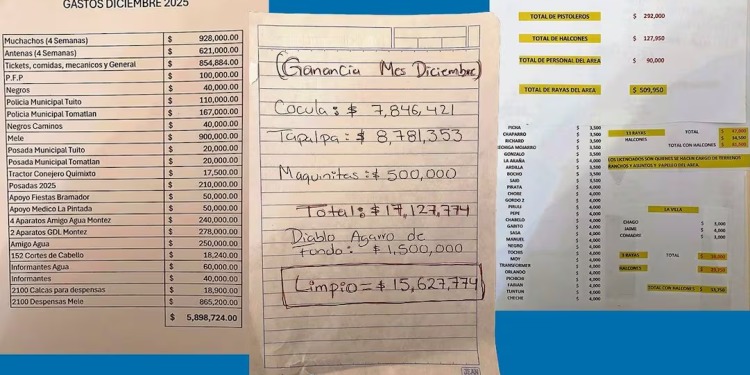 GASTOS DICIEMBRE 2025
Muchachos (4 Semanas) $ 928,000.00
Antenas (4 Semanas) $ 621,000.00
Tickets, comidas, mecanicos y General $ 854,884.00
P.F.P $ 100,000.00
Negros $ 40,000.00
Policia Municipal Tuito $ 110,000.00
Policia Municipal Tomatlan $ 167,000.00
Negros Caminos $ 40,000.00
Mele $ 900,000.00
Posada Municipal Tuito $ 20,000.00
Posada Municipal Tomatlan $ 20,000.00
Tractor Conejero Quimixto $ 17,500.00
Posadas 2025 $ 210,000.00
Apoyo Fiestas Bramador $ 50,000.00
Apoyo Medico La Pintada $ 50,000.00
4 Aparatos Amigo Agua Montez $ 240,000.00
2 Aparatos GDL Montez $ 278,000.00
Amigo Agua $ 250,000.00
152 Cortes de Cabello $ 18,240.00
Informantes Agua $ 60,000.00
Informantes $ 40,000.00
2100 Calcas para despensas $ 18,900.00
2100 Despensas Mele $ 865,200.00
$ 5,898,724.00
(Ganancia Mes Diciembre)
Cocula: $ 7,846,421
Tapalpa: $ 8,781,353
Maquinitas: $ 500,000
Total: $ 17,127,774
Diablo Agarro de
fondo: $ 1,500,000
Limpio = $ 15,627,774
JEAN
TOTAL DE PISTOLEROS $ 292,000
TOTAL DE HALCONES $ 127,950
TOTAL DE PERSONAL DEL AREA $ 90,000
TOTAL DE RAYAS DEL AREA $ 509,950
PICHA $ 3,500
CHAPARRO $ 3,500
RICHARD $ 3,500
$ 3,500
GONZALO $ 3,500
LA ARAÑA $ 4,000
ARDILLA $ 3,500
BOCHO $ 3,500
SAID $ 3,500
PIRATA $ 4,000
CHORE $ 4,000
GORDO 2 $ 4,000
PIRULI $ 4,000
PEPE $ 4,000
CHABELO $ 4,000
GARITO $ 4,000
SASA $ 4,000
MANUEL $ 4,000
NEGRO $ 4,000
TOCHIS $ 4,000
MOY $ 4,000
TRANSFORMER $ 4,000
ORLANDO $ 4,000
PICHICHI $ 4,000
FABIAN $ 4,000
TUNTUN $ 4,000
CHECHE $ 4,000
13 RAYAS TOTAL
HALCONES
TOTAL CON HALCONES
LOS LICENCIADOS SON QUIENES SE HACEN CARGO DE TERRENOS
RANCHOS Y ASUNTOS Y PAPELEO DEL AREA.
LA VILLA
CHAGO $ 3,000
JAIME $ 4,000
COMADRE $ 3,000
3 RAYAS TOTAL
HALCONES
TOTAL CON HALCONES